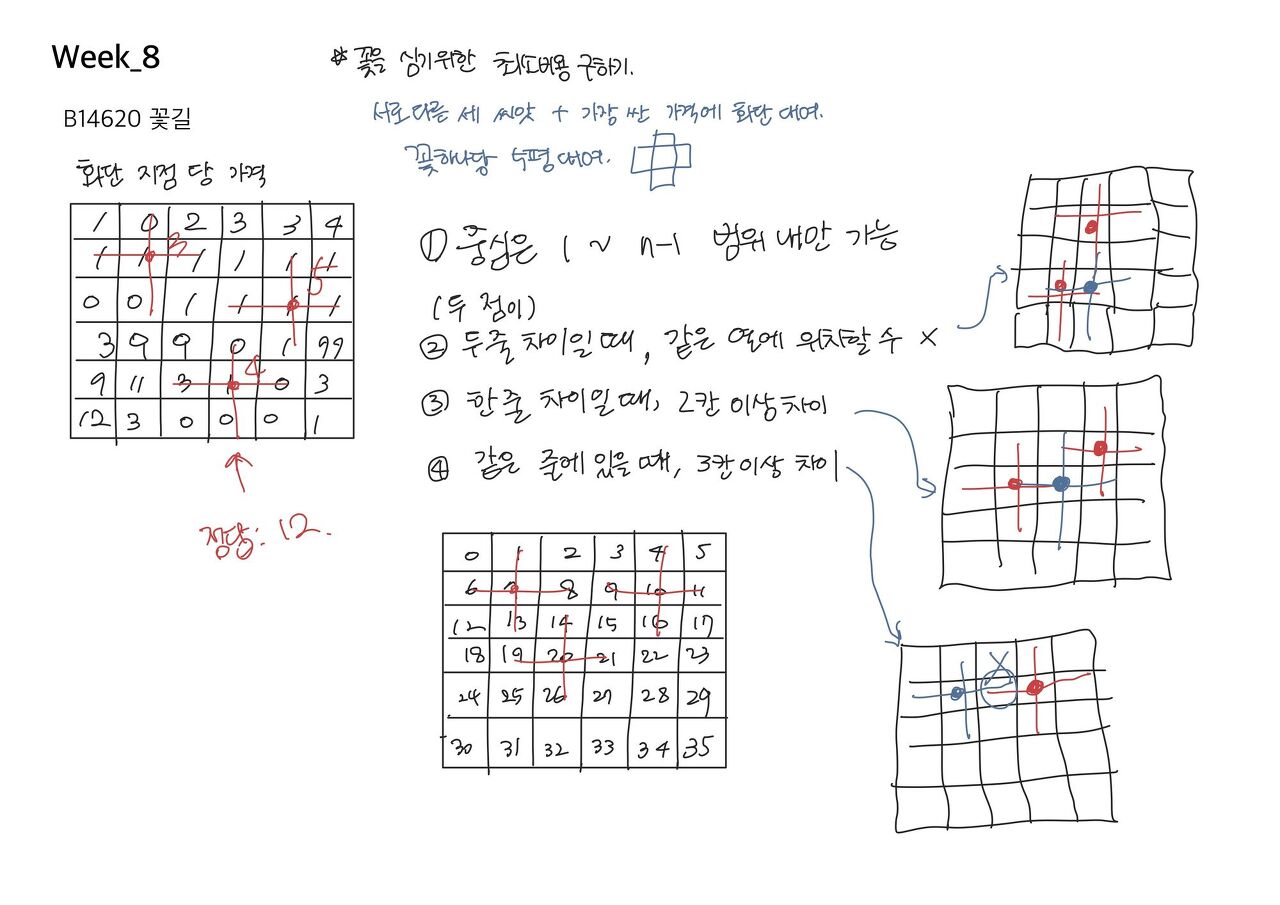 Week_8
* 꽃을 심기위한 최소비용 구하기.
B14620 꽃길
서로다른 세 씨앗 + 가장 싼 가격에 화단 대여.
꽃하나당 5평 대여.
화단 지점 당 가격
1 0 2 3 3 4
1 1 1 1 1 1
3
5
0 0 1 1 1 1
3 9 9 0 1 99
9 11 3 1 0 3
4
12 3 0 0 0 1
정답: 12.
① 중심은 1 ~ n-1 범위 내만 가능
(두 점이)
② 두줄 차이일 때, 같은 열에 위치할 수 X
③ 한 줄 차이일 때, 2칸 이상 차이
④ 같은 줄에 있을 때, 3칸 이상 차이
0 1 2 3 4 5
6 7 8 9 10 11
12 13 14 15 16 17
18 19 20 21 22 23
24 25 26 27 28 29
30 31 32 33 34 35
X